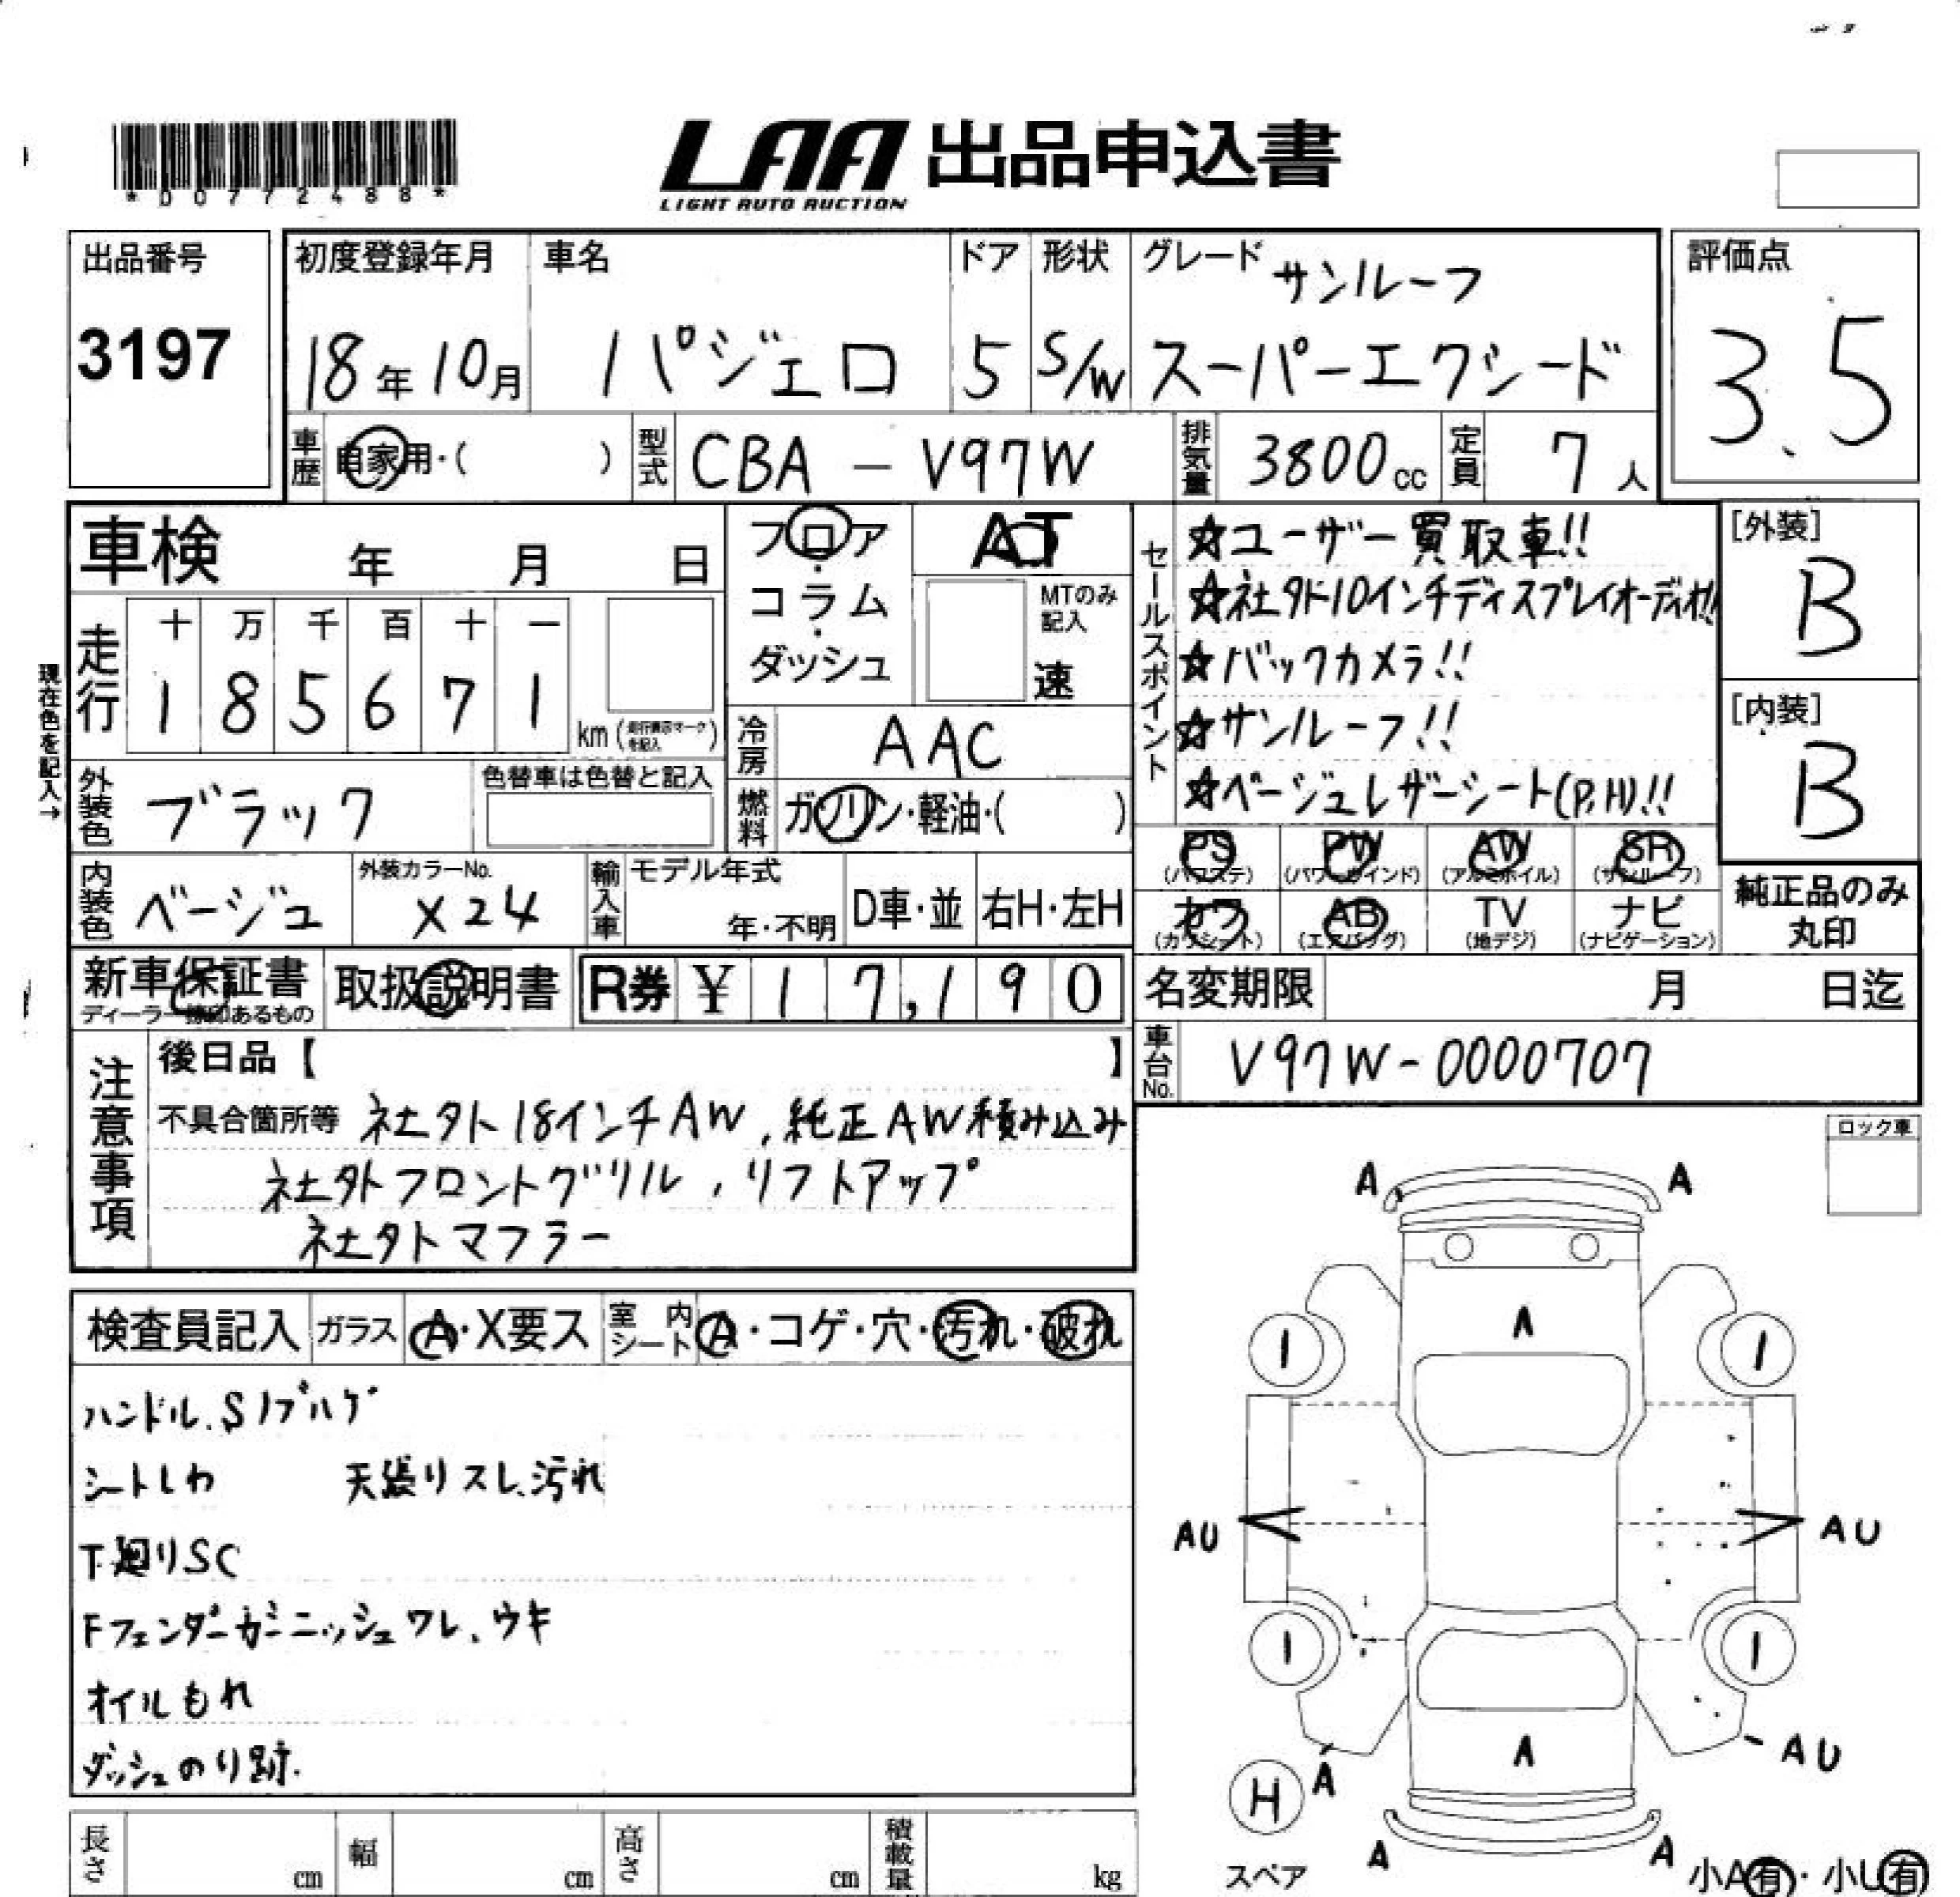 *00772488*
LAA 出品申込書
LIGHT AUTO AUCTION
出品番号
3197
初度登録年月
18年10月
車名
パジェロ
ドア
5
形状
S/W
グレード
サンルーフ
スーパーエクシード
評価点
3.5
車歴
自家用・( )
型式
CBA-V97W
排気量
3800cc
定員
7人
車検 年 月 日
走行
十 万 千 百 十 一
1 8 5 6 7 1
km(走行表示マークを記入)
現在色を記入→
フロア・コラム・ダッシュ
AT
MTのみ記入
速
冷房
AAC
燃料
ガソリン・軽油・( )
セールスポイント
☆ユーザー買取車!!
☆社外10インチディスプレイオーディオ!!
☆バックカメラ!!
☆サンルーフ!!
☆ベージュレザーシート(P,H)!!
[外装]
B
[内装]
B
外装色
ブラック
色替車は色替と記入
内装色
ベージュ
外装カラーNo.
X24
輸入車
モデル年式
年・不明
D車・並
右H・左H
PS (パワステ)
PW (パワーウインド)
AW (アルミホイル)
SR (サンルーフ)
カワ (カワシート)
AB (エアバッグ)
TV (地デジ)
ナビ (ナビゲーション)
純正品のみ丸印
新車保証書
取扱説明書
R券 ¥17,190
名変期限 月 日迄
車台No.
V97W-0000707
注意事項
後日品【 】
不具合箇所等 社外18インチAW,純正AW積み込み
社外フロントグリル,リフトアップ
社外マフラー
ロック車
検査員記入
ガラス
A・X要ス
室内シート
A・コゲ・穴・汚れ・破れ
ハンドル.Sノブハゲ
シートしわ 天張りスレ.汚れ
下廻りSC
Fフェンダーガーニッシュワレ、ウキ
オイルもれ
ダッシュのり跡.
A A
A
1 1
AU AU
1 1
A
AU
H A
A A
スペア
小A有・小U有
長さ cm
幅 cm
高さ cm
積載量 kg